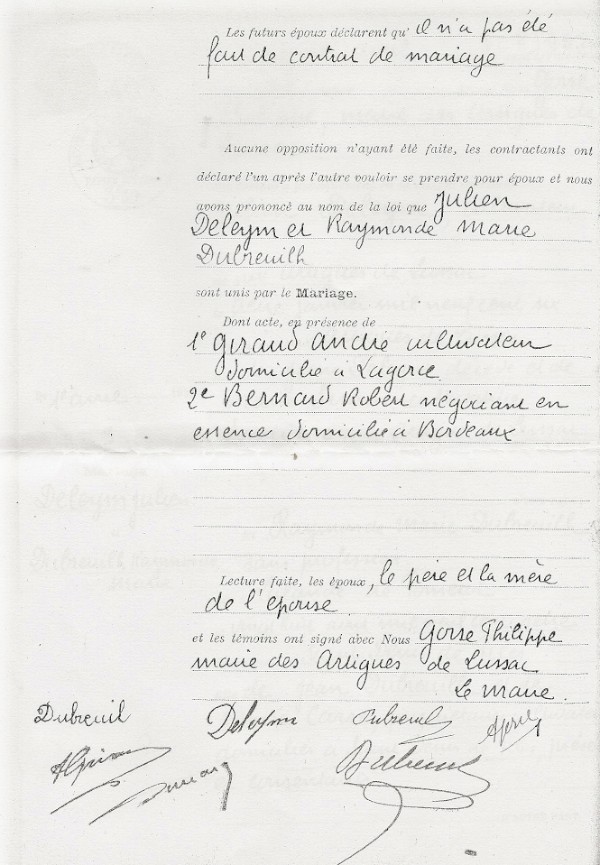 Les futurs époux déclarent qu' il n'a pas été
fait de contrat de mariage
Aucune opposition n'ayant été faite, les contractants ont
déclaré l'un après l'autre vouloir se prendre pour époux et nous
avons prononcé au nom de la loi que Julien
Deleym et Raymonde Marie
Dubreuilh
sont unis par le Mariage.
Dont acte, en présence de
1e Giraud André cultivateur
domicilié à Lagorce
2e Bernard Robert négociant en
essence domicilié à Bordeaux
Lecture faite, les époux, le père et la mère
de l'épouse
et les témoins ont signé avec Nous Gorse Philippe
maire des Artigues de Lussac
Le maire.
Dubreuil Deleym Dubreuil